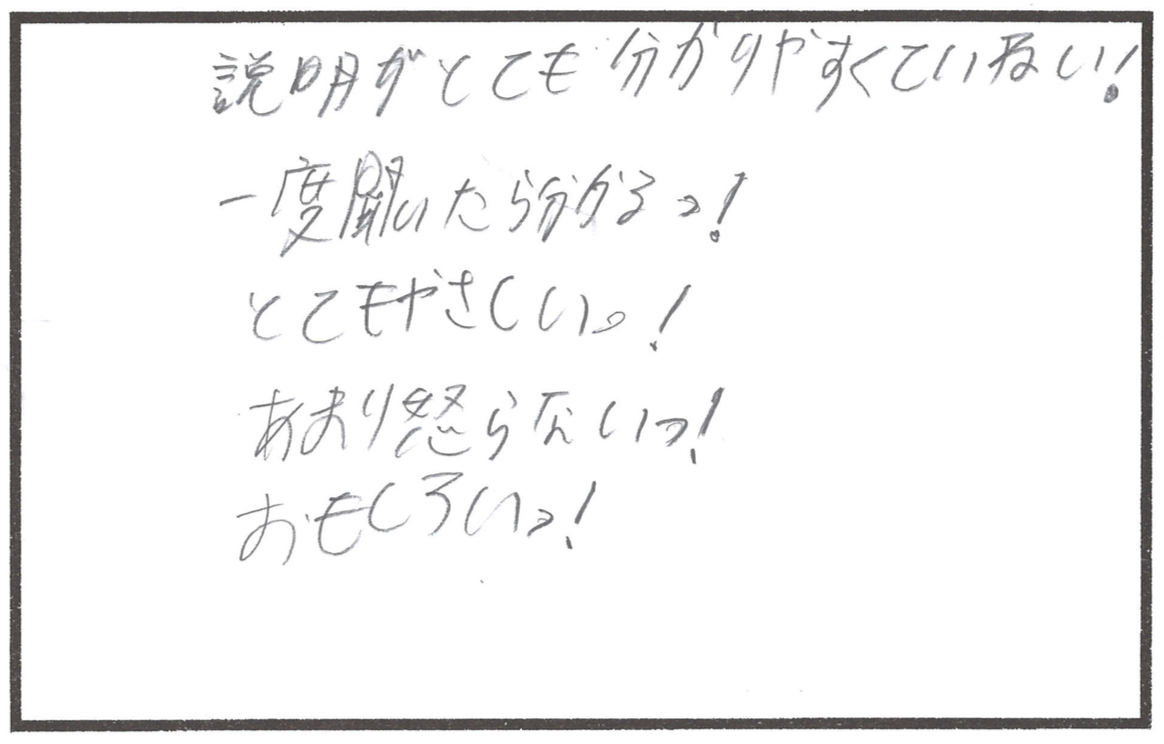 説明がとても分かりやすくていねい!
一度聞いたら分かるっ!
とてもやさしいっ!
あまり怒らないっ!
おもしろいっ!